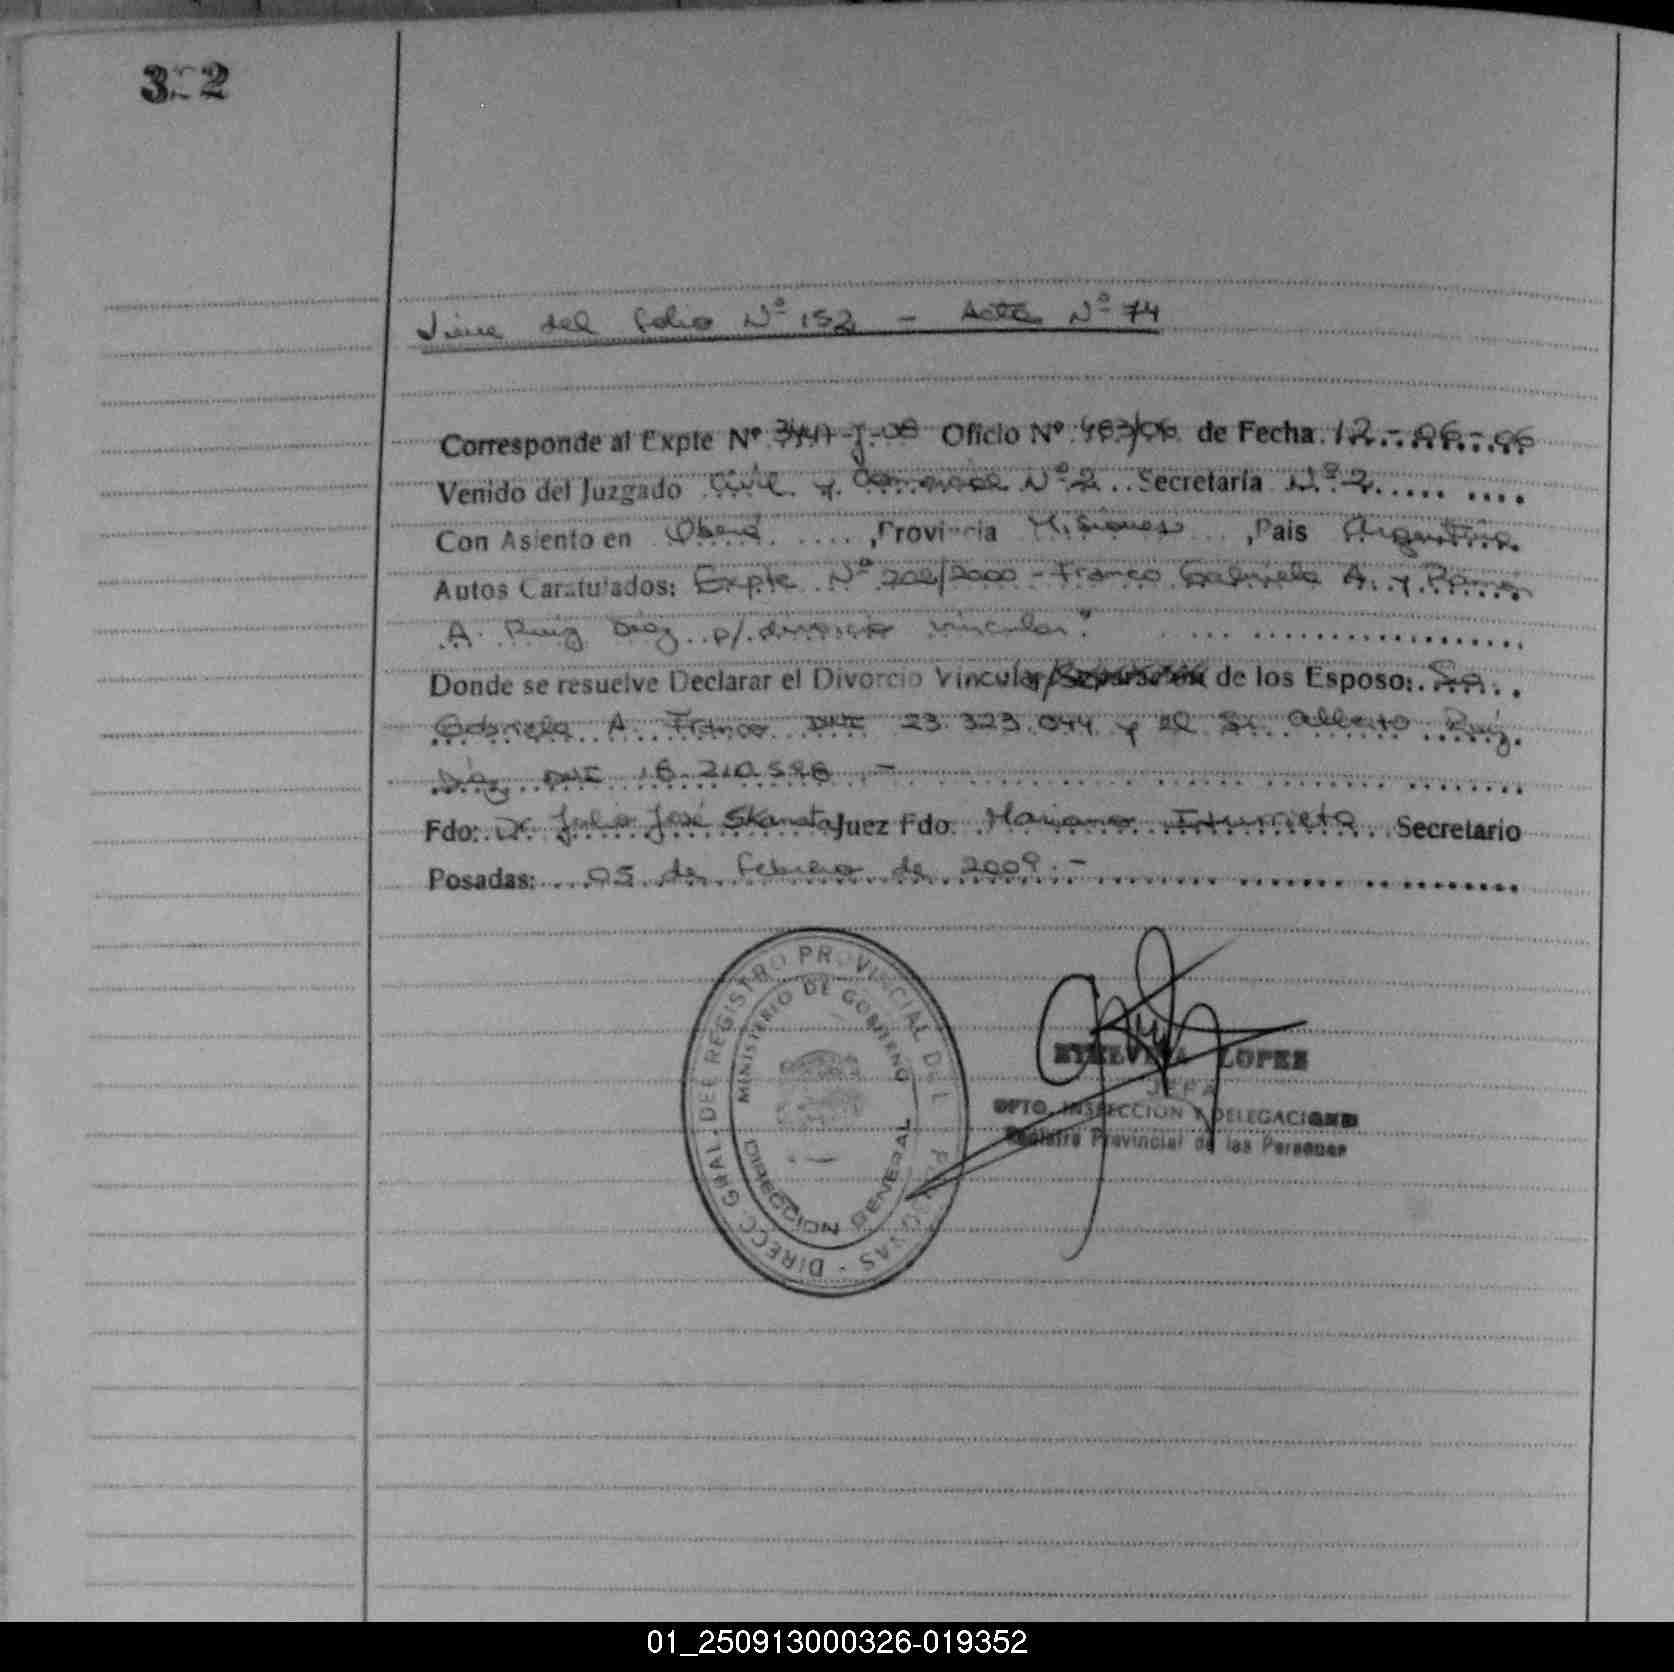 32
Viene del folio Nº 152 - Acta Nº 74
Corresponde al Expte Nº 3447-J-08 Oficio Nº 483/06 de Fecha 12-06-06
Venido del Juzgado Civil y Comercial Nº 2 Secretaría Nº 2
Con Asiento en Oberá, Provincia Misiones, Pais Argentina
Autos Caratulados: Expte Nº 202/2000 - Franco Gabriela A. y Ramón
A. Ruiz Díaz p/ divorcio vincular"
Donde se resuelve Declarar el Divorcio Vincular/Separación de los Esposo: Sra
Gabriela A. Franco DNI 23.323.044 y el Sr. Alberto Ruiz
Díaz DNI 18.210.598.-
Fdo: Dr Julio José Skanata Juez Fdo. Mariano Iturrieta Secretario
Posadas: 05 de Febrero de 2009.-
DIRECC. GRAL. DEL REGISTRO PROVINCIAL DE L
MINISTERIO DE GOBIERNO
DIRECCION GENERAL
ETHELVINA LOPEZ
JEFA
DPTO. INSPECCION Y DELEGACIONES
Registro Provincial de las Personas
01_250913000326-019352